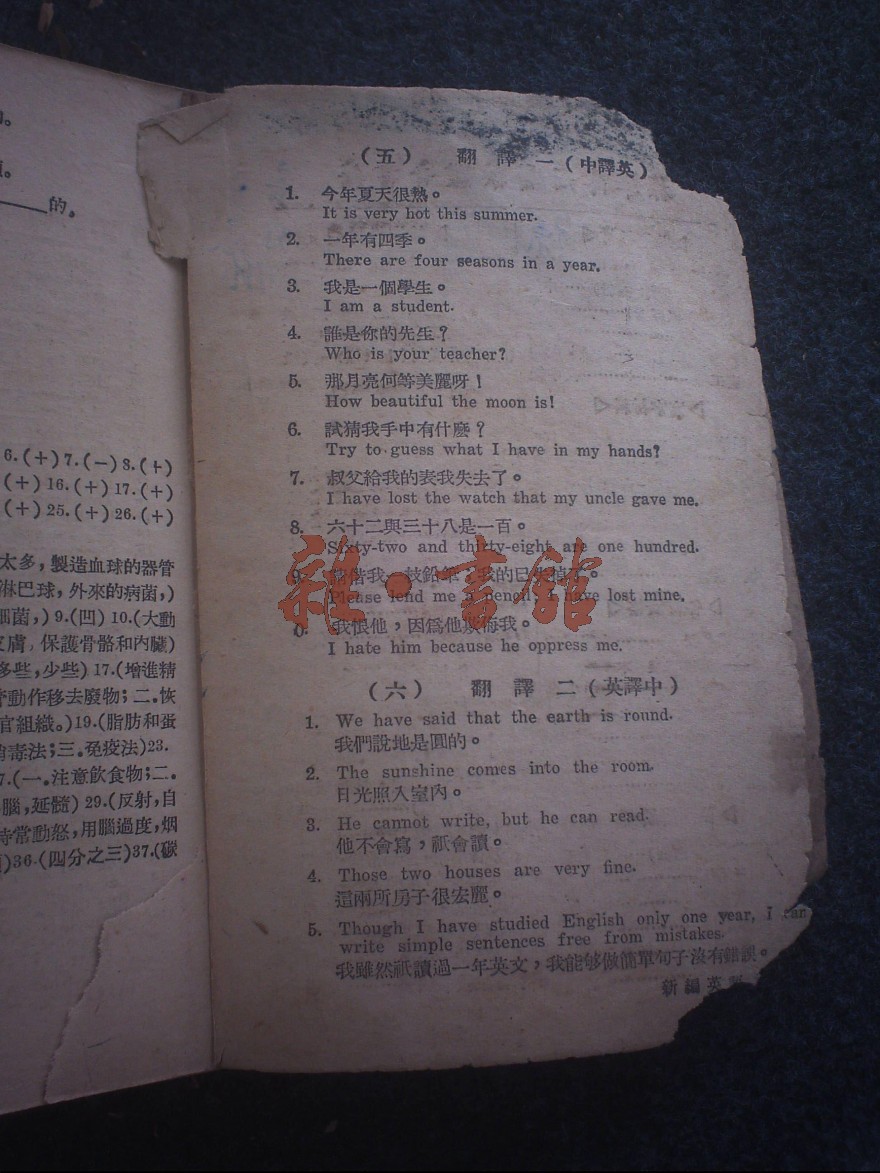 的。
6.(+)7.(-)8.(+)
(+)16.(+)17.(+)
(+)25.(+)26.(+)
太多，製造血球的器管
淋巴球，外來的病菌，)
細菌，)9.(凹) 10.(大動
皮膚，保護骨骼和內臟)
多些，少些) 17.(增進精
動作移去廢物；二.恢
官組織。)19.(脂肪和蛋
消毒法；三.免疫法)23.
7.(一.注意飲食物；二.
腦，延髓) 29.(反射，自
時常動怒，用腦過度，烟
)36.(四分之三)37.(碳
（五） 翻譯一（中譯英）
1. 今年夏天很熱。
It is very hot this summer.
2. 一年有四季。
There are four seasons in a year.
3. 我是一個學生。
I am a student.
4. 誰是你的先生？
Who is your teacher?
5. 那月亮何等美麗呀！
How beautiful the moon is!
6. 試猜我手中有什麽？
Try to guess what I have in my hands?
7. 叔父給我的表我失去了。
I have lost the watch that my uncle gave me.
8. 六十二與三十八是一百。
Sixty-two and thirty-eight are one hundred.
9. 請借我一枝鉛筆，我的已失掉了。
Please lend me a pencil, I have lost mine.
0. 我恨他，因爲他欺侮我。
I hate him because he oppress me.
（六） 翻譯二（英譯中）
1. We have said that the earth is round.
我們說地是圓的。
2. The sunshine comes into the room.
日光照入室內。
3. He cannot write, but he can read.
他不會寫，祇會讀。
4. Those two houses are very fine.
這兩所房子很宏麗。
5. Though I have studied English only one year, I can
write simple sentences free from mistakes.
我雖然祇讀過一年英文，我能够做簡單句子沒有錯誤。
新編英
雜·書館